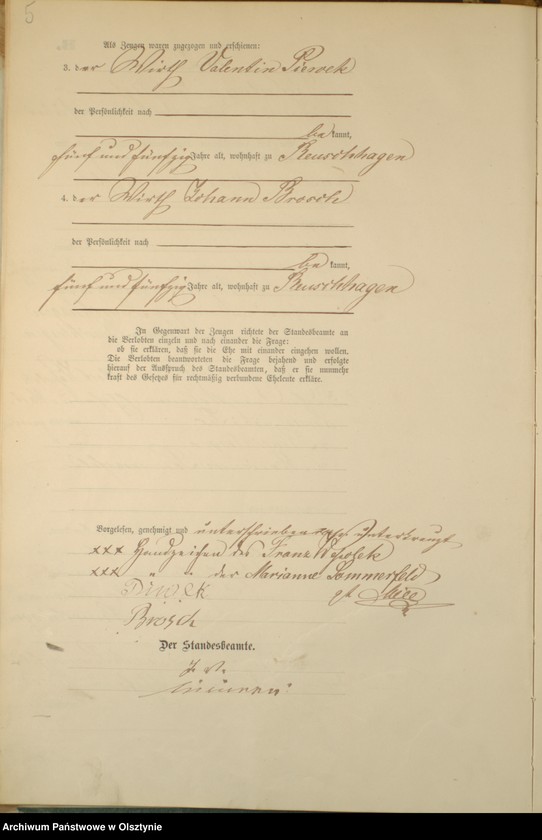 5
Als Zeugen waren zugezogen und erschienen:
3. der Wirth Valentin
der Persönlichkeit nach
bekannt,
fünf und fünfzig Jahre alt, wohnhaft zu Reuschhagen
4. der Wirth Johann Brosch
der Persönlichkeit nach
bekannt,
fünf und fünfzig Jahre alt, wohnhaft zu Reuschhagen
In Gegenwart der Zeugen richtete der Standesbeamte an
die Verlobten einzeln und nach einander die Frage:
ob sie erklären, daß sie die Ehe mit einander eingehen wollen.
Die Verlobten beantworteten die Frage bejahend und erfolgte
hierauf der Ausspruch des Standesbeamten, daß er sie nunmehr
kraft des Gesetzes für rechtmäßig verbundene Eheleute erkläre.
Vorgelesen, genehmigt und unterschrieben resp. unterkreuzt
xxx Handzeichen des Franz
xxx " " der Marianne Sommerfeld
Brosch
Der Standesbeamte.
J. V.
Archiwum Państwowe w Olsztynie